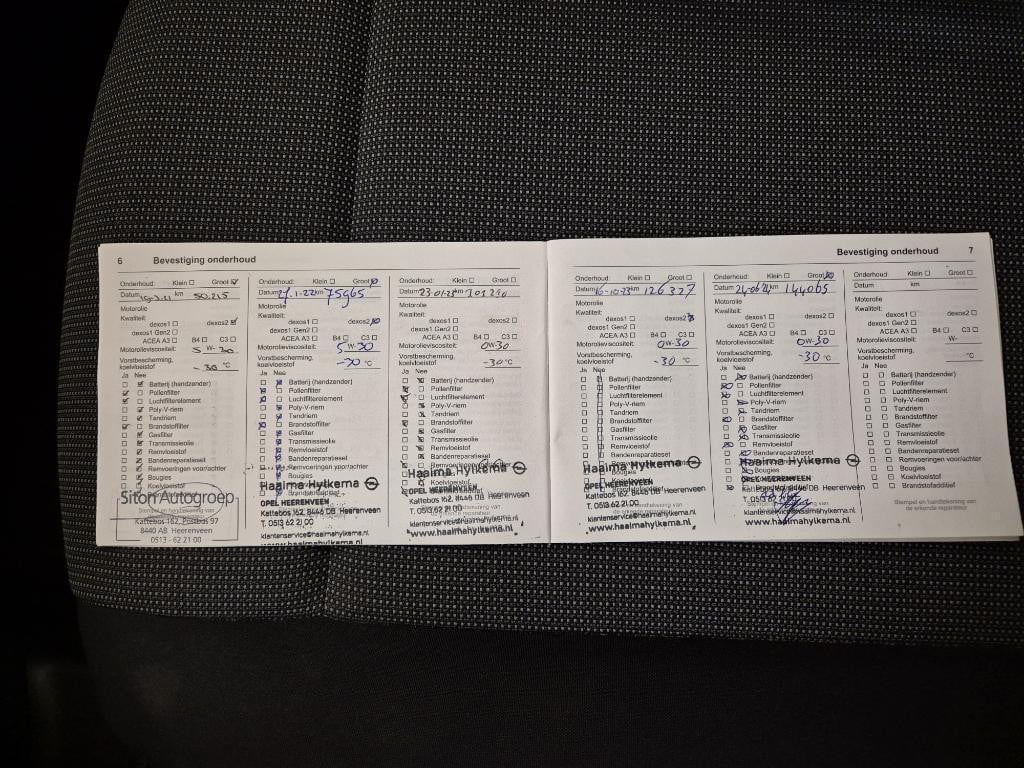 6 Bevestiging onderhoud
Onderhoud: Klein ☐ Groot ☑
Datum km 50.215
Motorolie
Kwaliteit:
dexos1 ☐ dexos2 ☑
dexos1 Gen2 ☐
ACEA A3 ☐ B4 ☐ C3 ☐
Motorolieviscositeit:
5 W-30
Vorstbescherming,
koelvloeistof -30 °C
Ja Nee
Batterij (handzender)
Pollenfilter
Luchtfilterelement
Poly-V-riem
Tandriem
Brandstoffilter
Gasfilter
Transmissieolie
Remvloeistof
Bandenreparatieset
Remvoeringen voor/achter
Bougies
Koelvloeistof
Siton Autogroep
Kattebos 162, Postbus 97
8440 AB Heerenveen
0513 - 62 21 00
Onderhoud: Klein ☐ Groot
Datum 1-22 km 75965
Motorolie
Kwaliteit:
dexos1 ☐ dexos2
dexos1 Gen2 ☐
ACEA A3 ☐ B4 ☐ C3 ☐
Motorolieviscositeit: 5W-30
Vorstbescherming,
koelvloeistof °C
Ja Nee
Batterij (handzender)
Pollenfilter
Luchtfilterelement
Poly-V-riem
Tandriem
Brandstoffilter
Gasfilter
Transmissieolie
Remvloeistof
Bandenreparatieset
Remvoeringen voor/achter
Haaima Hylkema
Brandstofadditief
OPEL HEERENVEEN
Kattebos 162, 8446 DB Heerenveen
T. 0513 62 21 00
klantenservice@haaimahylkema.nl
www.haaimahylkema.nl
Onderhoud: Klein ☐ Groot ☐
Datum 23-01-23 km
Motorolie
Kwaliteit:
dexos1 ☐ dexos2 ☐
dexos1 Gen2 ☐
ACEA A3 ☐ B4 ☐ C3 ☐
Motorolieviscositeit: 0W-30
Vorstbescherming,
koelvloeistof -30 °C
Ja Nee
Batterij (handzender)
Pollenfilter
Luchtfilterelement
Poly-V-riem
Tandriem
Brandstoffilter
Gasfilter
Transmissieolie
Remvloeistof
Bandenreparatieset
Haaima Hylkema
Koelvloeistof
OPEL HEERENVEEN
Kattebos 162, 8446 DB Heerenveen
T. 0513 62 21 00
klantenservice@haaimahylkema.nl
www.haaimahylkema.nl
Bevestiging onderhoud 7
Onderhoud: Klein ☐ Groot ☐
Datum 16-10-23 km 126327
Motorolie
Kwaliteit:
dexos1 ☐ dexos2
dexos1 Gen2 ☐
ACEA A3 ☐ B4 ☐ C3 ☐
Motorolieviscositeit: 0W-30
Vorstbescherming,
koelvloeistof -30 °C
Ja Nee
Batterij (handzender)
Pollenfilter
Luchtfilterelement
Poly-V-riem
Tandriem
Brandstoffilter
Gasfilter
Transmissieolie
Remvloeistof
Bandenreparatieset
Haaima Hylkema
Bougies
OPEL HEERENVEEN
Kattebos 162, 8446 DB Heerenveen
T. 0513 62 21 00
klantenservice@haaimahylkema.nl
www.haaimahylkema.nl
Onderhoud: Klein ☐ Groot
Datum 24-06-24 km 144065
Motorolie
Kwaliteit:
dexos1 ☐ dexos2 ☐
dexos1 Gen2 ☐
ACEA A3 ☐ B4 ☐ C3 ☐
Motorolieviscositeit: 0W-30
Vorstbescherming,
koelvloeistof -30 °C
Ja Nee
Batterij (handzender)
Pollenfilter
Luchtfilterelement
Poly-V-riem
Tandriem
Brandstoffilter
Gasfilter
Transmissieolie
Remvloeistof
Bandenreparatieset
Haaima Hylkema
Bougies
OPEL HEERENVEEN
Kattebos 162, 8446 DB Heerenveen
klantenservice@haaimahylkema.nl
www.haaimahylkema.nl
Onderhoud: Klein ☐ Groot ☐
Datum km
Motorolie
Kwaliteit:
dexos1 ☐ dexos2 ☐
dexos1 Gen2 ☐
ACEA A3 ☐ B4 ☐ C3 ☐
Motorolieviscositeit: W-
Vorstbescherming,
koelvloeistof °C
Ja Nee
☐ ☐ Batterij (handzender)
☐ ☐ Pollenfilter
☐ ☐ Luchtfilterelement
☐ ☐ Poly-V-riem
☐ ☐ Tandriem
☐ ☐ Brandstoffilter
☐ ☐ Gasfilter
☐ ☐ Transmissieolie
☐ ☐ Remvloeistof
☐ ☐ Bandenreparatieset
☐ ☐ Remvoeringen voor/achter
☐ ☐ Bougies
☐ ☐ Koelvloeistof
☐ ☐ Brandstofadditief
Stempel en handtekening van
de erkende reparateur